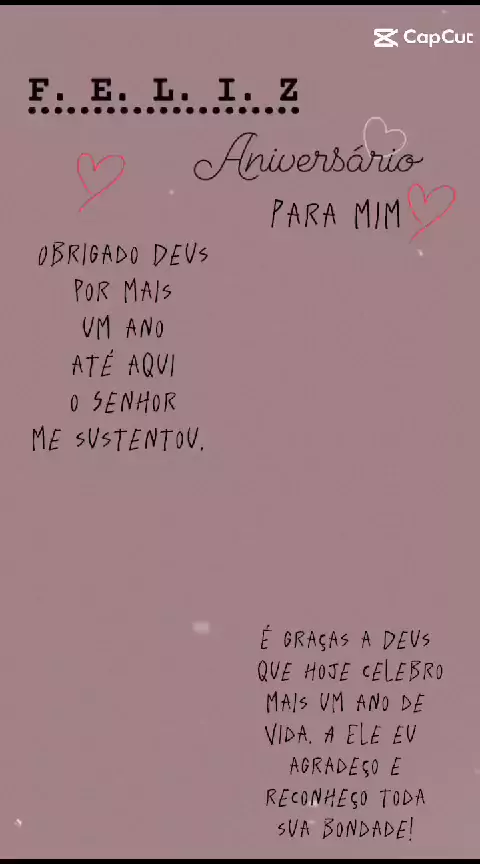 CapCut
F. E. L. I. Z
Aniversário
PARA MIM
OBRIGADO DEUS
POR MAIS
UM ANO
ATÉ AQUI
O SENHOR
ME SUSTENTOU.
É GRAÇAS A DEUS
QUE HOJE CELEBRO
MAIS UM ANO DE
VIDA. A ELE EU
AGRADEÇO E
RECONHEÇO TODA
SUA BONDADE!